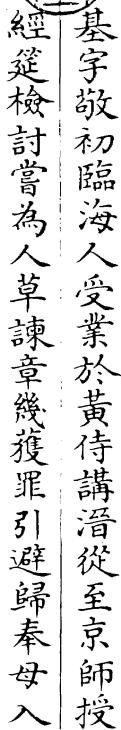 基字敬初臨海人受業於黃侍講溍從至京師授
經筵檢討嘗為人草諫章幾獲罪引避歸奉母入